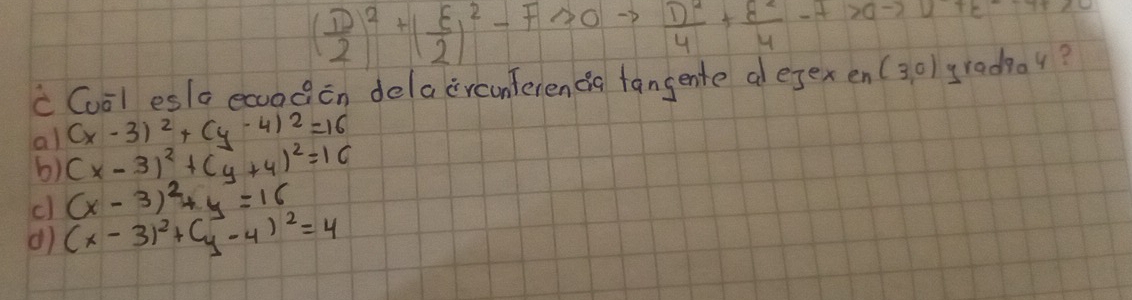 (D/2)² + (E/2)² - F > 0 → D²/4 + E²/4 - F > 0 →
¿Cuál es la ecuación de la circunferencia tangente al eje x en (3,0) y radio 4?
a) (x - 3)² + (y - 4)² = 16
b) (x - 3)² + (y + 4)² = 16
c) (x - 3)² + y = 16
d) (x - 3)² + (y - 4)² = 4